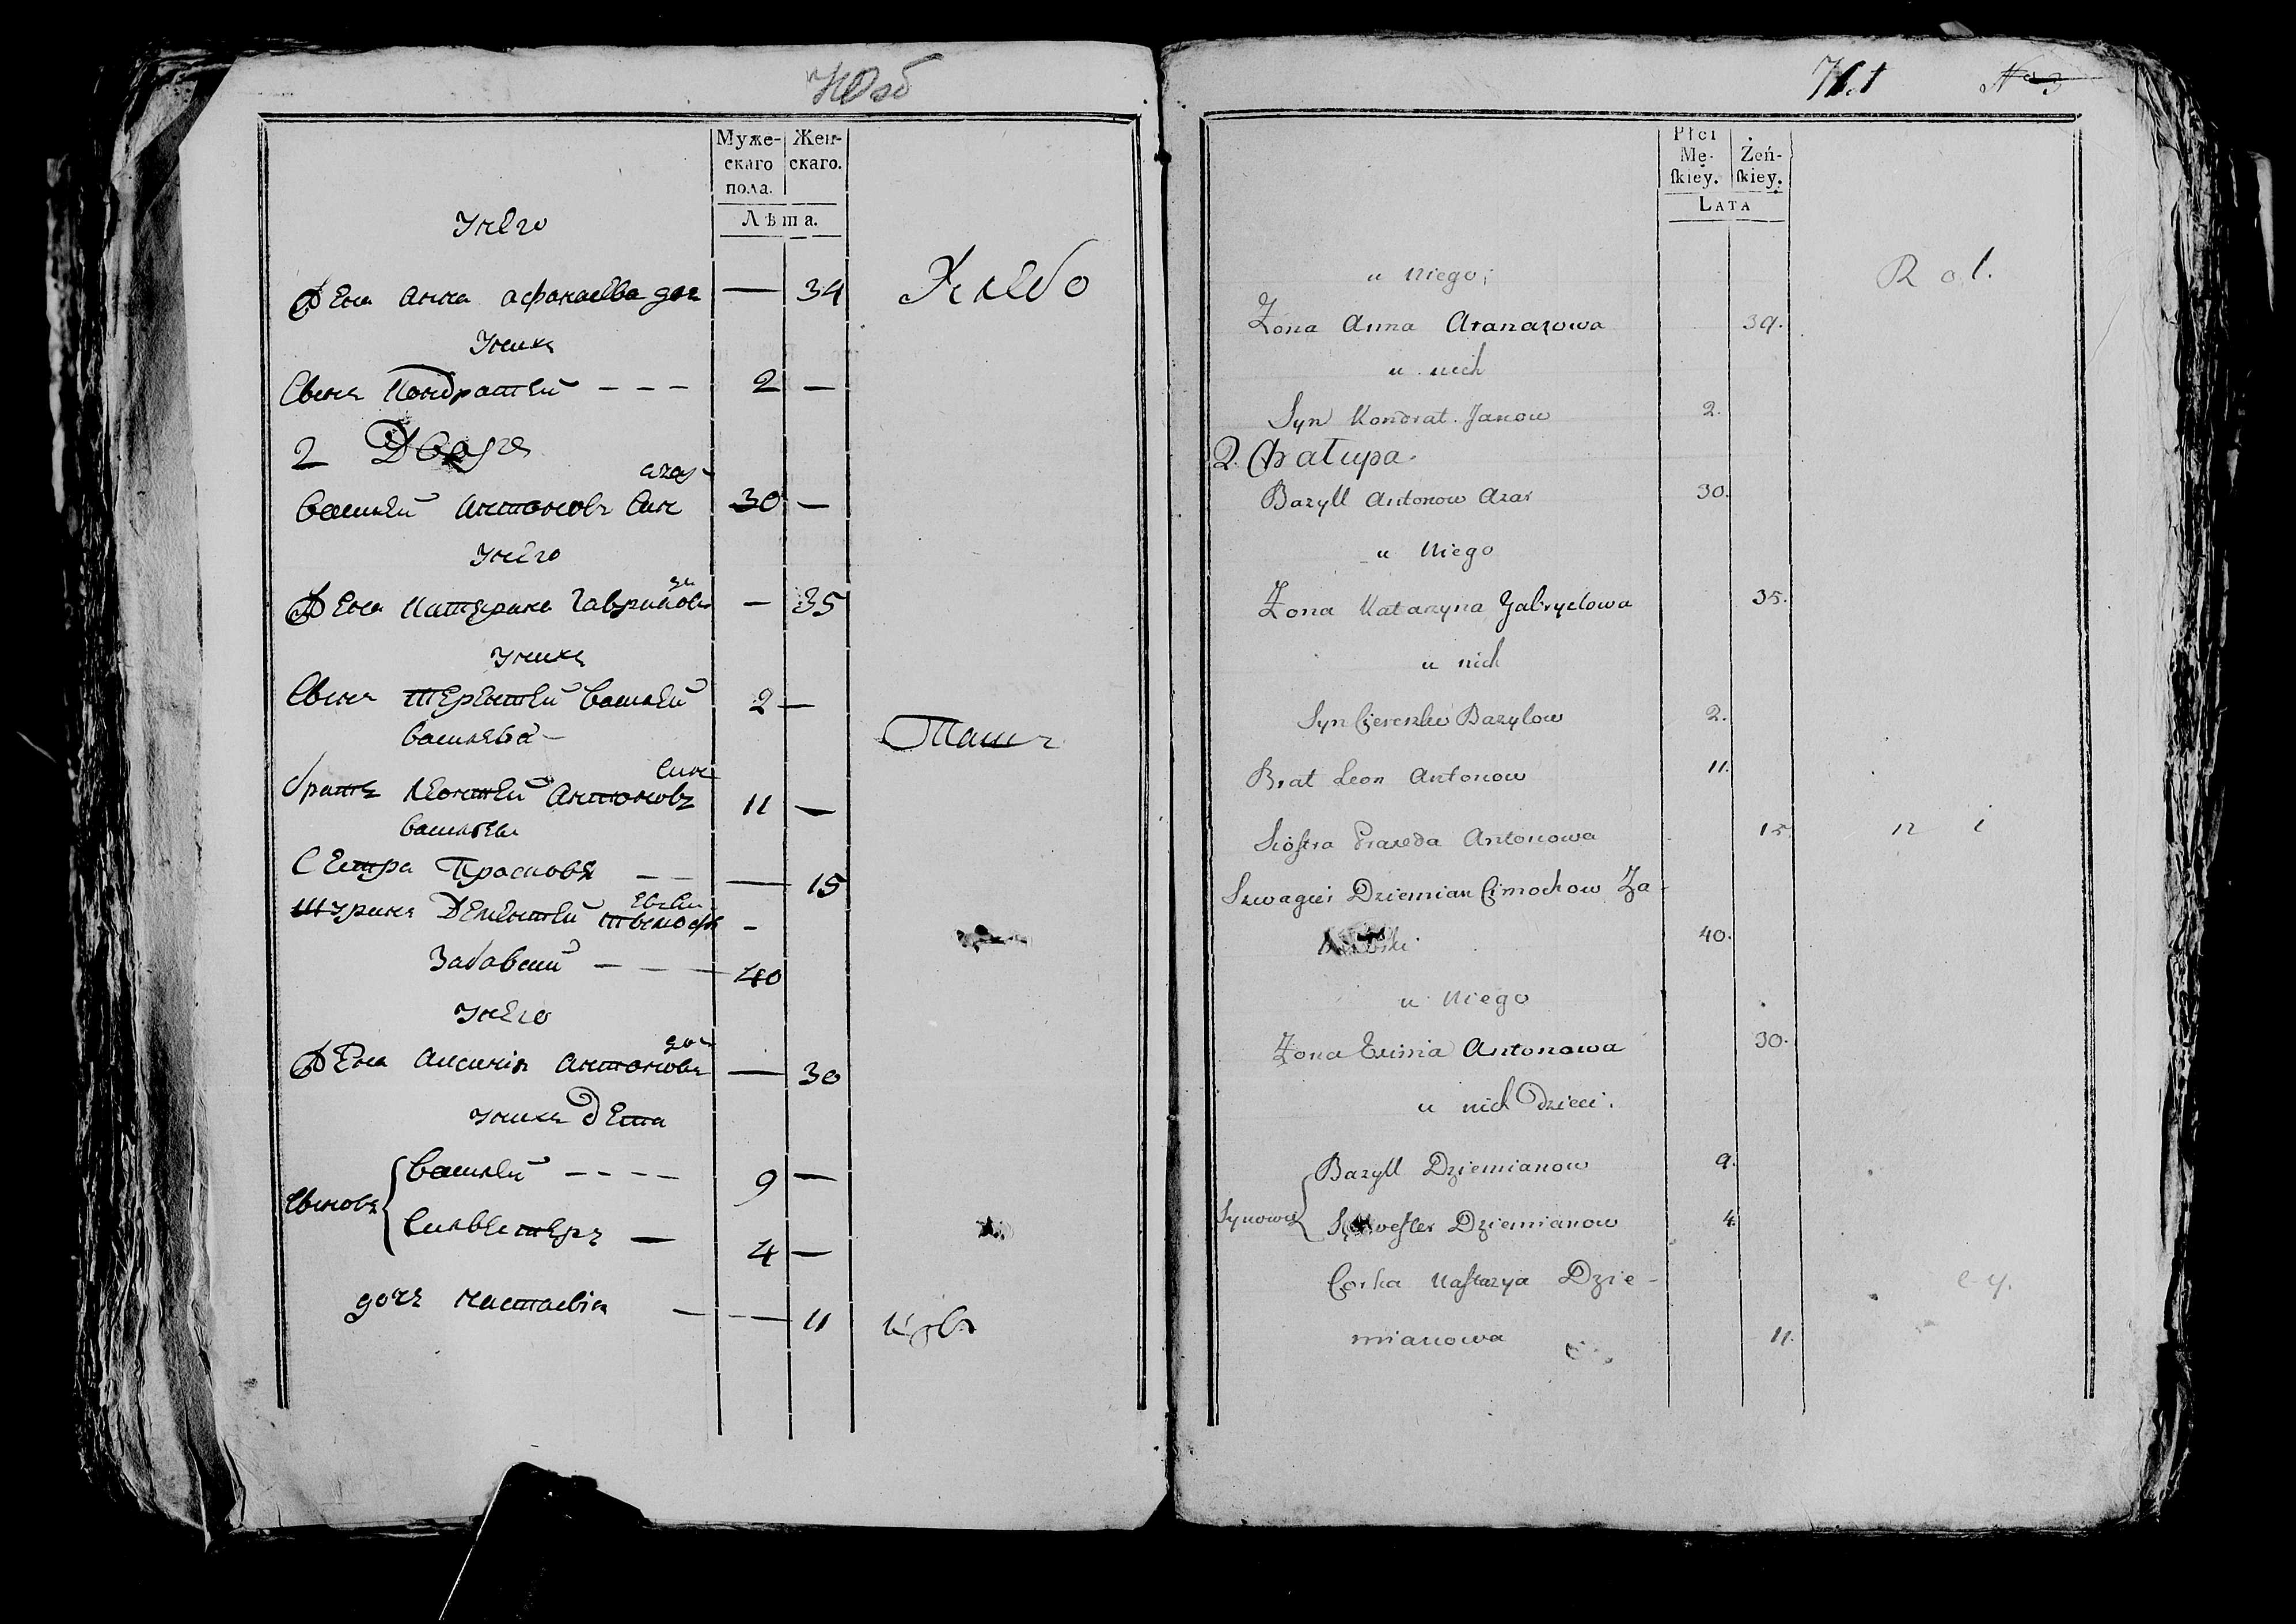 Муже-
скаго
пола.
Жен-
скаго.
Лѣта.
Унего
Жена Анна Афанасева доч — 34
Хлебо
Уних
Сынъ Кондратей — — — 2 —
2 Дворъ
Азар
Василей Антоновъ Сын 30 —
Унего
до
Жена Катерина Гаврилов — 35
Унихъ
Сынъ Терентей Василей 2 —
Васильева —
Паш
Сынъ
братъ Леонтей Антоновъ 11 —
Васильева
Сестра Просковья — — 15
Шуринъ Дементей Тимоф —
Забавски — — — 40
Унего
доч
Жена Аксинія Антонов — 30
Унихъ Дета
Сыновъ
Василей — — — — 9 —
Силвестеръ — 4 —
дочь Настасія — — — 11
N° 3
Płci
Mę-
ſkiey.
Żeń-
ſkiey.
LATA
u Niego;
R o l.
Żona Anna Atanazowa 39.
u nich
Syn Kondrat Janow 2.
2. Chałupa
Bazyll Antonow Azar 30.
u Niego
Żona Katarzyna Gabryelowa 35.
u nich
Syn Ciereszko Bazylow 2.
Brat Leon Antonow 11.
Siostra Praxeda Antonowa 15.
n i
Szwagier Dziemian Cimochow Za-
40.
u Niego
Żona Euxinia Antonowa 30.
u nich Dzieci.
Synowie
Bazyll Dziemianow 9.
Sylwester Dziemianow 4
Corka Nastazya Dzie-
c y.
mianowa 11.